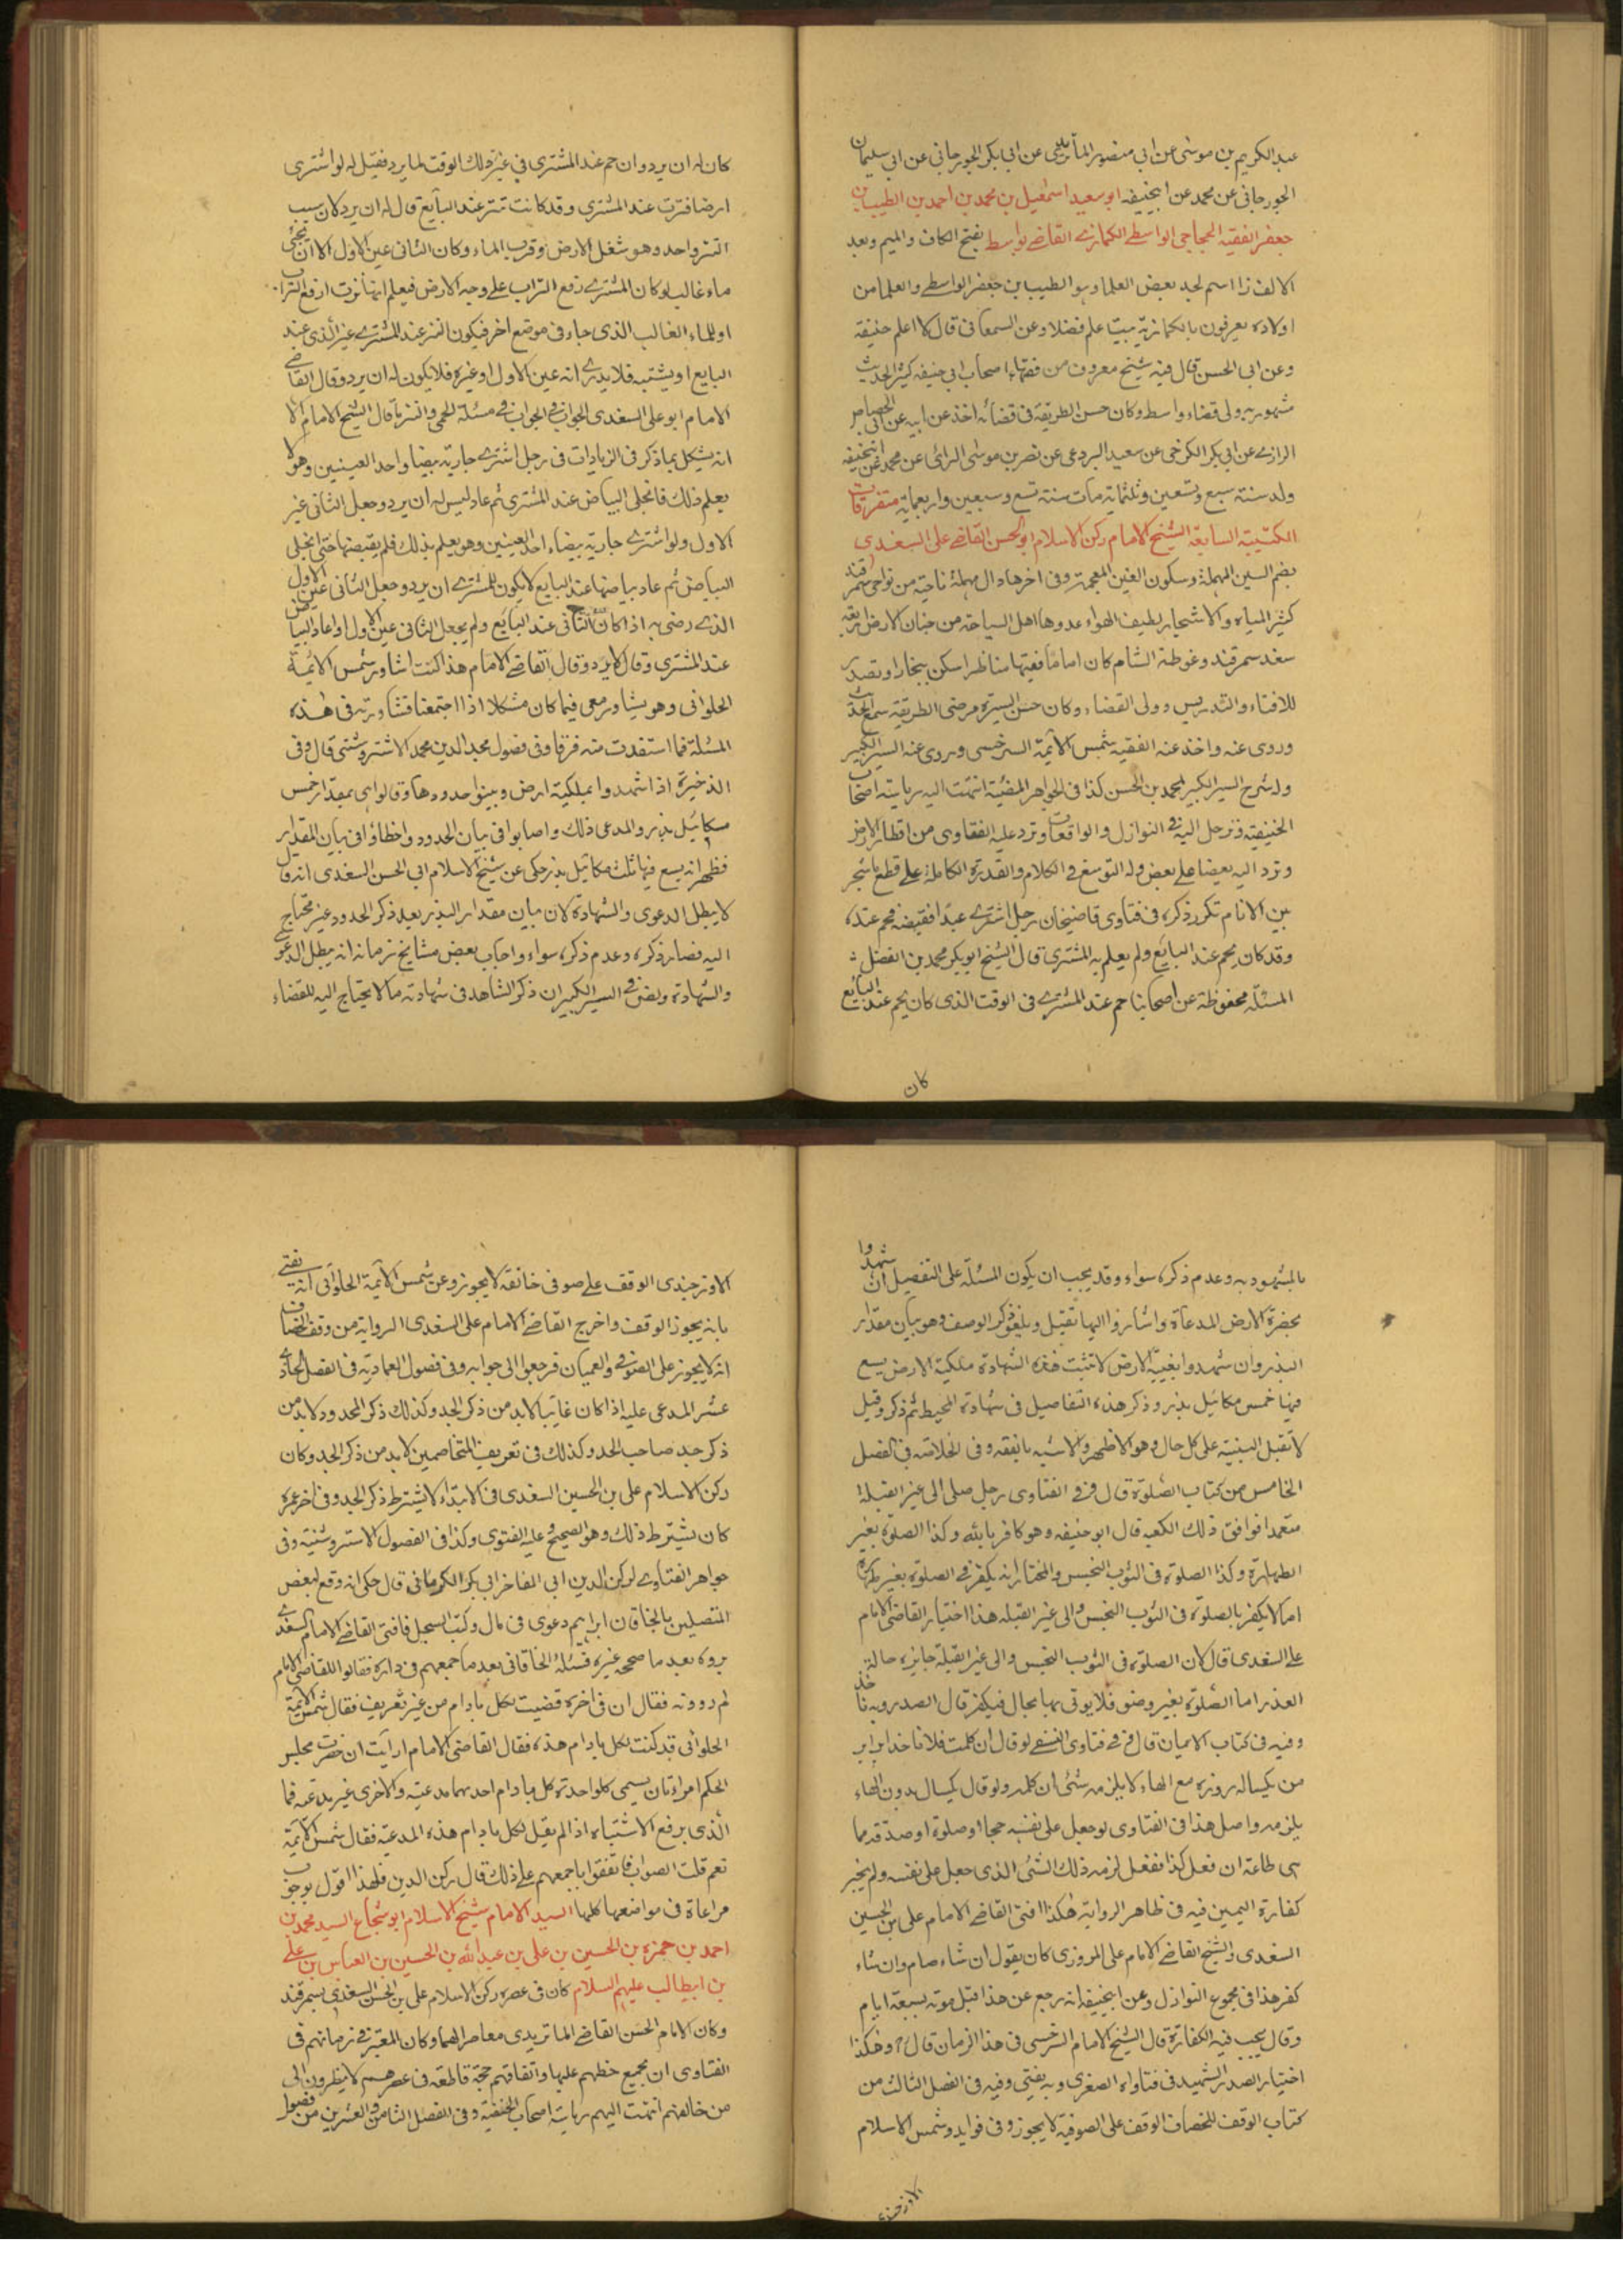 عبد الكريم بن موسى عن ابى منصور الماتريدى عن ابى بكر الجورجانى عن ابى سليمان
الجورجانى عن محمد عن ابيحنيفه ابو سعيد اسمعيل بن محمد بن احمد بن الطيب بن
جعفر الفقيه الحجاجى الواسطى الكمارى القاضى بواسط بفتح الكاف والميم وبعد
الالف زا اسم لجد بعض العلما وهو الطيب بن جعفر الواسطى والعلما من
اولاده يعرفون بالكماريه بيت علم فضلا وعن السمعانى قال لا اعلم حنيفة
وعن ابى الحسن قال فيه شيخ معروف من فقهاء اصحاب ابى حنيفه كثير الحديث
مشهور به ولى قضاء واسط وكان حسن الطريقة فى قضائه اخذ عن ابيه عن ابى
الرازى عن ابى بكر الكرخى عن سعيد البردعى عن نصر بن موسى الرائى عن محمد عن ابيحنيفه
ولد سنة سبع وتسعين وثلثماية مات سنة تسع وسبعين واربعماية متفرقات
الكتيبة السابعة الشيخ الامام ركن الاسلام ابو الحسن القاضى على السغدى
بضم السين المهملة وسكون الغين المعجمة وفى اخرها دال مهملة ناحية من نواحى سمرقند
كثير المياه والاشجار لطيف الهواء عدوها اهل السياحة من جنان الارض اربعة
سغد سمرقند وغوطة الشام كان اماما فقيها مناظرا سكن ببخارا وتصدر
للافتاء والتدريس وولى القضاء وكان حسن السيرة مرضى الطريقة سمع الحديث
وروى عنه واخذ عنه الفقيه شمس الائمة السرخسى وروى عنه السير الكبير
وله شرح السير الكبير لمحمد بن الحسن كذا فى الجواهر المضيئة انتهت اليه رياسة اصحاب
الحنيفة ورحل اليه فى النوازل والواقعات وترد عليه الفتاوى من اقطار الارض
وترد اليه بعضا على بعض وله التوسع فى الكلام والقدرة الكاملة على قطع ما شجر
بين الانام تكرر ذكره فى فتاوى قاضيخان رجل اشترى عبدا فقبضه فحم عنده
وقد كان يحم عند البايع ولم يعلم به المشترى قال الشيخ ابو بكر محمد بن الفضل
المسئلة محفوظة عن اصحابنا حم عند المشترى فى الوقت الذى كان يحم عند البايع
كان
كان له ان يرد وان حم عند المشترى فى غير ذلك الوقت لما يرد فقيل له لو اشترى
ارضا فنزت عند المشترى وقد كانت تنز عند البايع قال له ان يرد لان سبب
النز واحد وهو شغل الارض وقرب الماء وكان الثانى عين الاول الا ان يجئ
ماء غالب او كان المشترى رفع التراب على وجه الارض فيعلم انها نزت ارفع التراب
او للماء الغالب الذى جاء فى موضع اخر فيكون النز عند المشترى غير الذى عند
البايع او يشتبه فلا يدرى انه عين الاول او غيره فلا يكون له ان يرد وقال القاضى
الامام ابو على السغدى الجواب فى الجواب فى مسئلة الحمى والنز ما قال الشيخ الامام الا
انه يشكل بما ذكر فى الزيادات فى رجل اشترى جارية بيضا واحد العينين وهو لا
يعلم ذلك فانجلى البياض عند المشترى ثم عاد ليس له ان يرد وجعل الثانى غير
الاول ولو اشترى جارية بيضاء احد العينين وهو يعلم بذلك فلم يقبضها حتى انجلى
البياض ثم عاد بياضها عند البايع لا يكون للمشترى ان يرد وجعل الثانى عين الاول
الذى رضى به اذا كان الثانى عند البايع ولم يجعل الثانى عين الاول اذا عاد البياض
عند المشترى وقال لا يرد وقال القاضى الامام هذا كنت اشاور شمس الائمة
الحلوانى وهو يشاور معى فيما كان مشكلا اذا اجتمعنا فشاورته فى هذه
المسئلة فما استفدت منه فرقا وفى فصول مجد الدين محمد الاشتروشنى قال وفى
الذخيرة اذا شهدوا بملكية ارض وبينوا حدودها وقالوا هى بمقدار خمس
مكائيل بذر والمدعى ذلك واصابوا فى بيان الحدود واخطاؤا فى بيان المقدار
فظهر انه يسع فيها ثلث مكائيل بذر حكى عن شيخ الاسلام ابى الحسن السغدى انه قال
لا يبطل الدعوى والشهادة لان بيان مقدار البذر بعد ذكر الحدود غير محتاج
اليه فصار ذكره وعدم ذكره سواء واجاب بعض مشايخ زمانه انه يبطل الدعوى
والشهادة ونص فى السير الكبير ان ذكر الشاهد فى شهادته ما لا يحتاج اليه للقضاء
بالمشهود به وعدم ذكره سواء وقد يجب ان يكون المسئلة على التفصيل ان شهدوا
بحضرة الارض المدعاة واشاروا اليها تقبل ويلغو ذكر الوصف وهو بيان مقدار
البذر وان شهدوا بغيبة الارض لا تثبت هذه الشهادة ملكية الارض يسع
فيها خمس مكائيل بذر وذكر هذه التفاصيل فى شهادة المحيط ثم ذكر وقيل
لا تقبل البينة على كل حال وهو الاظهر والاشبه بالفقه وفى الخلاصة فى الفصل
الخامس من كتاب الصلوة قال فى الفتاوى رجل صلى الى غير القبلة
متعمدا فوافق ذلك الكعبه قال ابو حنيفه وهو كافر بالله وكذا الصلوة بغير
الطهارة وكذا الصلوة فى الثوب النجس والمختار انه يكفر فى الصلوة بغير طهارة
اما لا يكفر بالصلوة فى الثوب النجس والى غير القبله هذا اختيار القاضى الامام
على السغدى قال لان الصلوة فى الثوب النجس والى غير القبلة جايزه حالة
العذر اما الصلوة بغير وضوء فلا يوتى بها بحال فيكفر قال الصدر وبه ناخذ
وفيه فى كتاب الايمان قال فى فتاوى النسفى لو قال ان كلمت فلانا خدايرا بر
من يكساله روزه مع الهاء لا يلزمه شئ ان كلمه ولو قال يكسال بدون الهاء
يلزمه واصل هذا فى الفتاوى لو جعل على نفسه حجا او صلوة او صدقة مما
هى طاعة ان فعل كذا ففعل لزمه ذلك الشئ الذى جعل على نفسه ولم يخير
كفارة اليمين فيه فى ظاهر الرواية هكذا افتى القاضى الامام على بن الحسين
السغدى والشيخ القاضى الامام على المروزى كان يقول ان شاء صام وان شاء
كفر هذا فى مجموع النوازل وعن ابيحنيفه انه رجع عن هذا قبل موته بسبعة ايام
وقال يجب فيه الكفارة قال الشيخ الامام السرخسى فى هذا الزمان قال وهكذا
اختيار الصدر الشهيد فى فتاواه الصغرى وبه يفتى وفيه فى الفصل الثالث من
كتاب الوقف للخصاف الوقف على الصوفية لا يجوز وفى فوايد شمس الاسلام
الاوزجندى
الاوزجندى الوقف على صوفى خانقه لا يجوز وعن شمس الائمة الحلوانى انه يفتى
بانه يجوز الوقف واخرج القاضى الامام على السغدى الرواية من وقف الخصاف
انه لا يجوز على الصوفى والعميان فرجعوا الى جوابه وفى فصول العماديه فى الفصل الحادى
عشر المدعى عليه اذا كان غائبا لا بد من ذكر الجد وكذلك ذكر المحدود لا بد من
ذكر جد صاحب الحد وكذلك فى تعريف المتخاصمين لا بد من ذكر الجد وكان
ركن الاسلام على بن الحسين السغدى فى الابتداء لا يشترط ذكر الجد وفى اخر عمره
كان يشترط ذلك وهو الصحيح وعليه الفتوى وكذا فى الفصول الاستروشنية وفى
جواهر الفتاوى لركن الدين ابى المفاخر ابى بكر الكرمانى قال حكى انه وقع لبعض
المتصلين بالخاقان ابراهيم دعوى فى مال وكتب السجل فافتى القاضى الامام السغدى
برده بعد ما صححه غيره فسئله الخاقانى بعد ما جمعهم فى داره فقالوا للقاضى الامام
لم رددته فقال ان فى اخره قضيت لكل بادام من غير تعريف فقال شمس الائمة
الحلوانى قد كتبت لكل بادام هذه فقال القاضى الامام ارأيت ان حضرت مجلس
الحكم امرءتان يسمى كل واحدة كل بادام احدهما مدعية والاخرى غير مدعية فما
الذى يرفع الاشتباه اذا لم يقل لكل بادام هذه المدعية فقال شمس الائمة
نعم قلت الصواب فاتفقوا باجمعهم على ذلك قال ركن الدين فلهذا اقول بوجوب
مراعاة فى مواضعها كلها السيد الامام شيخ الاسلام ابو شجاع السيد محمد بن
احمد بن حمزه بن الحسين بن على بن عبد الله بن الحسين بن العباس بن على
بن ابيطالب عليهم السلام كان فى عصره ركن الاسلام على بن الحسن السغدى بسمرقند
وكان الامام الحسن القاضى الماتريدى معاصر الهما وكان المعتبر فى زمانهم فى
الفتاوى ان يجمع خطهم عليها واتفاقهم حجة قاطعة فى عصرهم لا ينظرون الى
من خالفهم انتهت اليهم رياسة اصحاب الحنفية وفى الفصل الثامن والعشرين من فصول